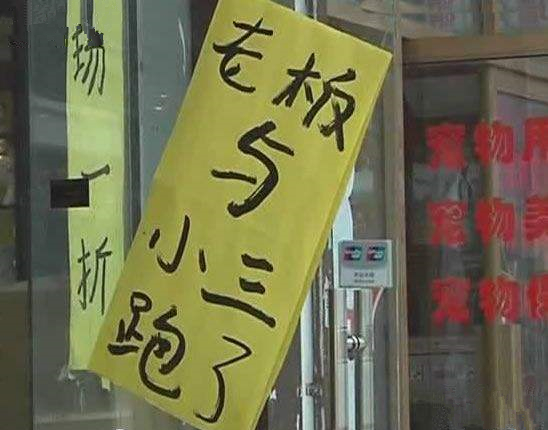 老板
与
小三
跑了
一折
宠物用
宠物美
宠物